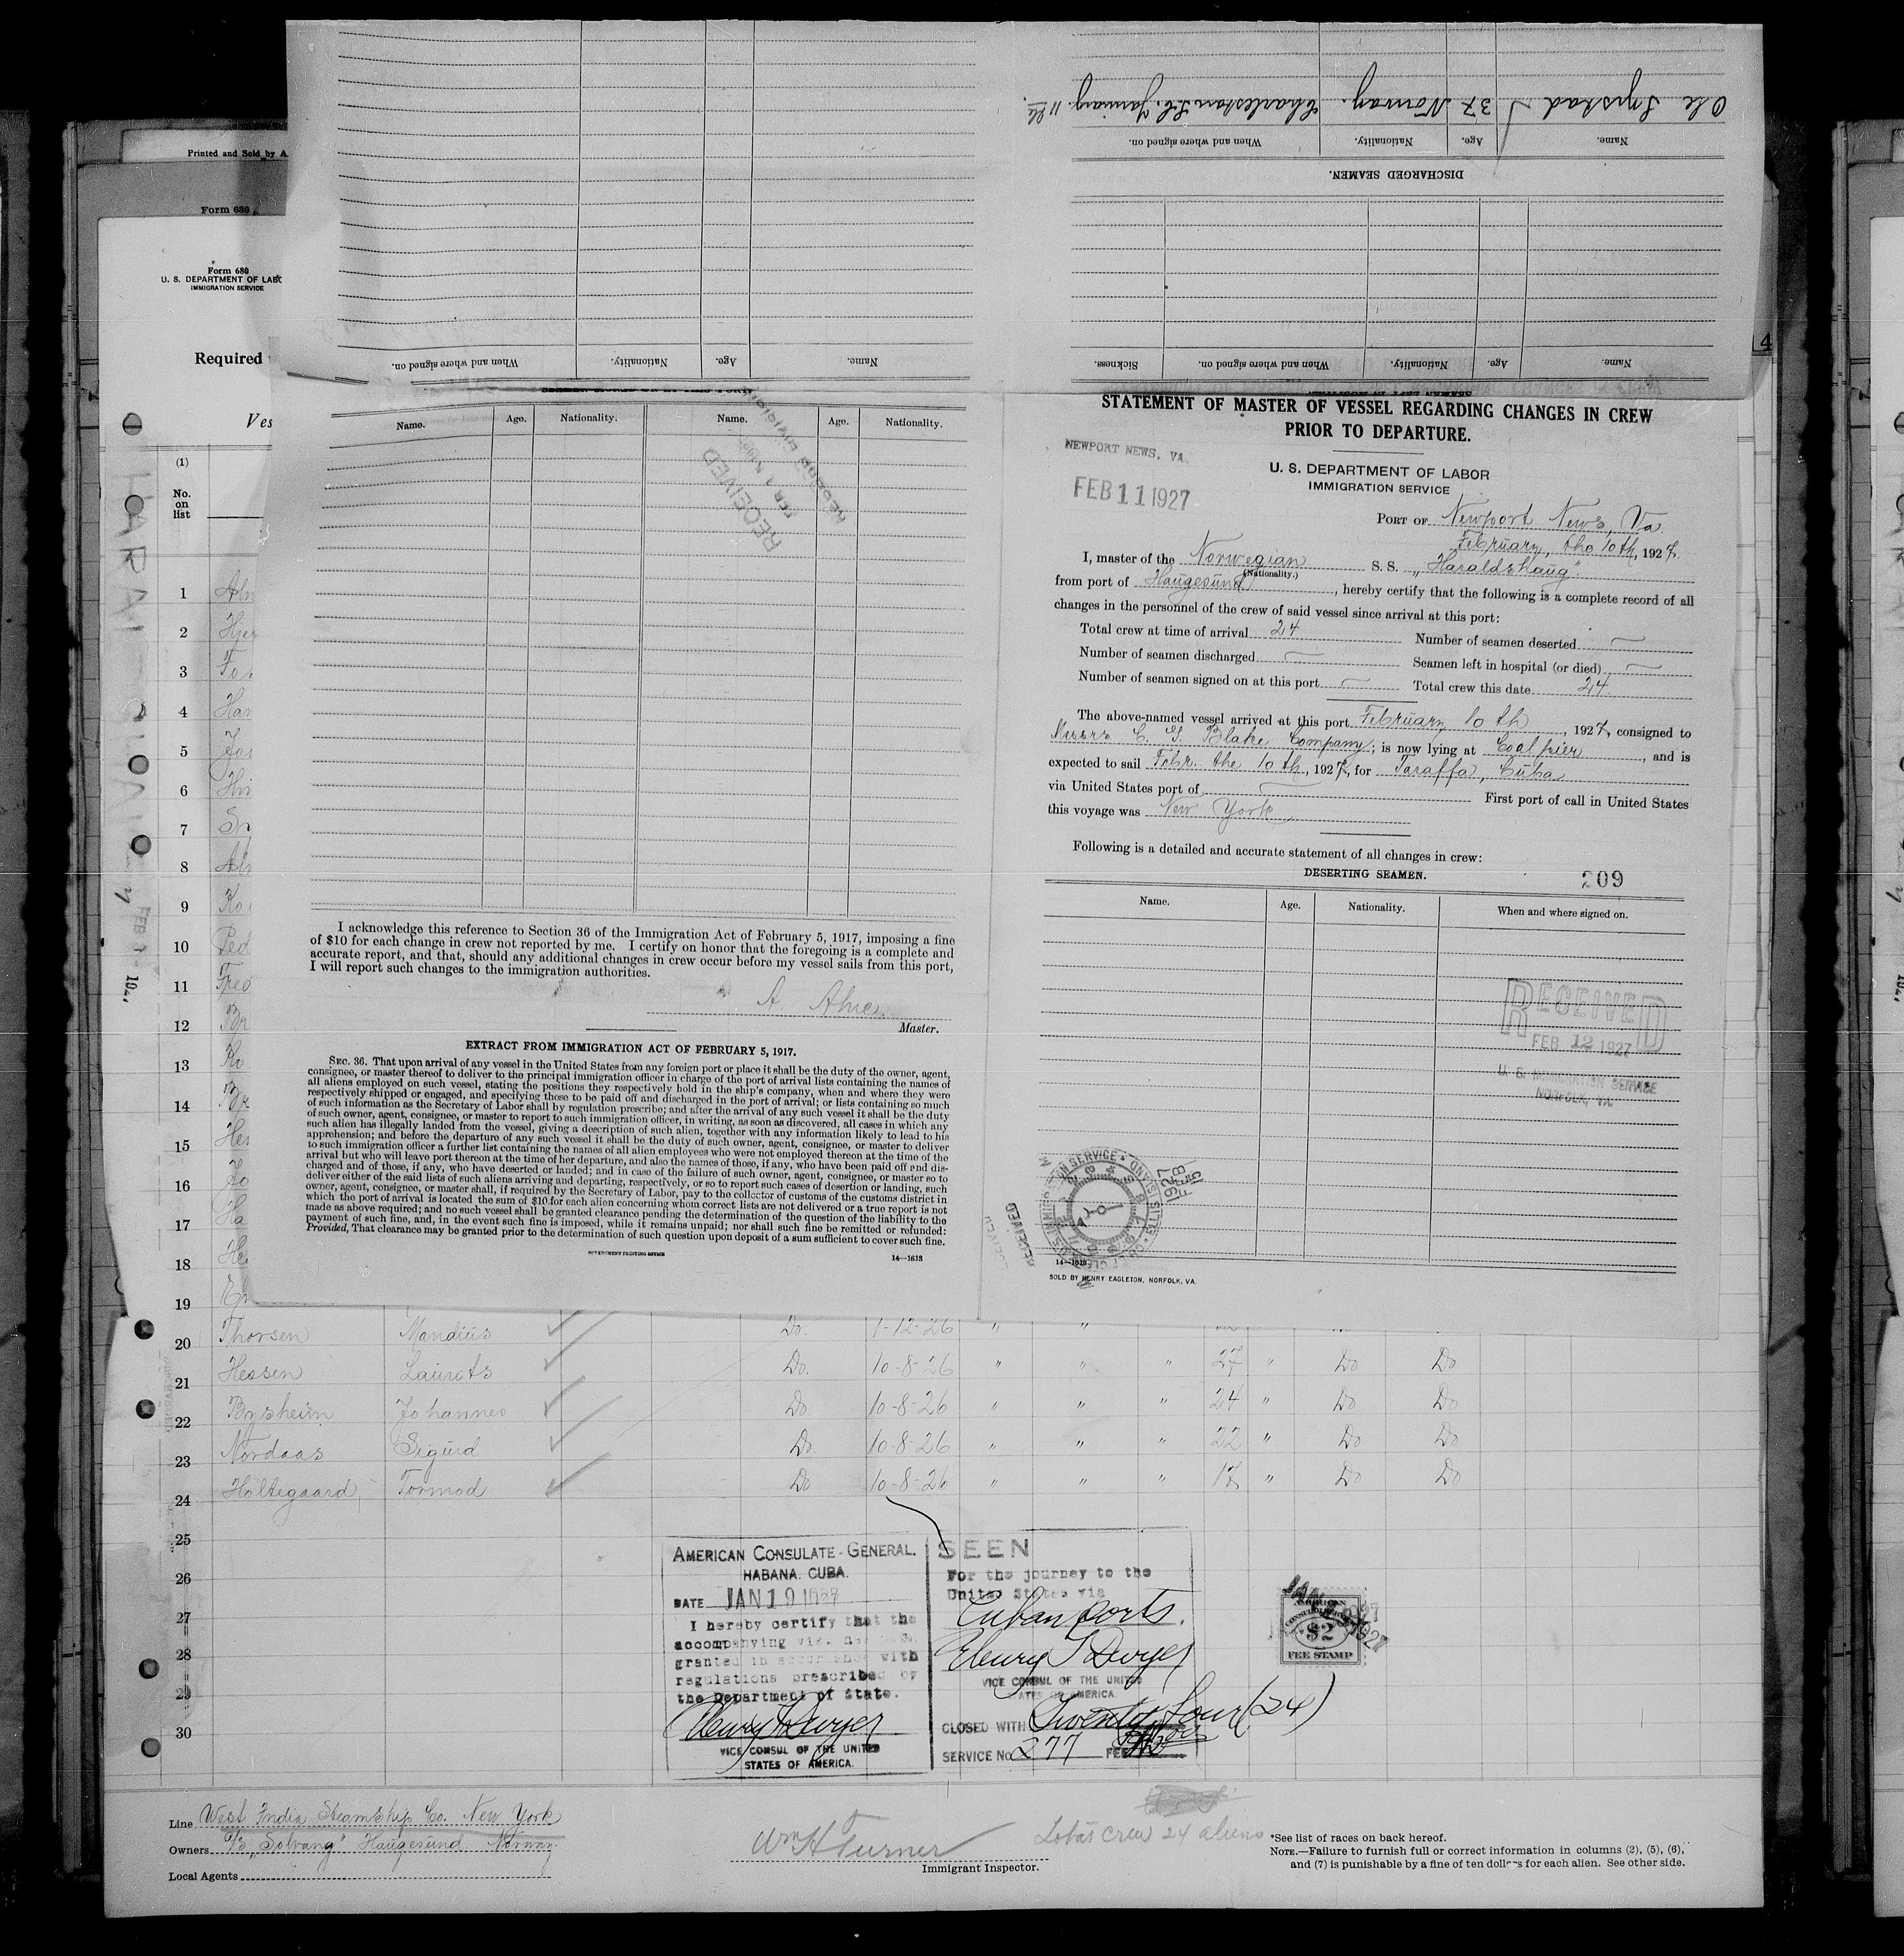 Ole Systad 37 Norway. Charleston S.C. January 11th.
Name. Age. Nationality. When and where signed on.
DISCHARGED SEAMEN.
Name. Age. Nationality. When and where signed on. Sickness.
Name. Age. Nationality. When and where signed on.
Printed and Sold by A.
Form 680
Form 680
U. S. DEPARTMENT OF LABO
IMMIGRATION SERVICE
Required
Ves
(1)
No.
on
list
4
Name. Age. Nationality. Name. Age. Nationality.
RECEIVED
RECORDS DIVISION
I acknowledge this reference to Section 36 of the Immigration Act of February 5, 1917, imposing a fine
of $10 for each change in crew not reported by me. I certify on honor that the foregoing is a complete and
accurate report, and that, should any additional changes in crew occur before my vessel sails from this port,
I will report such changes to the immigration authorities.
Master.
EXTRACT FROM IMMIGRATION ACT OF FEBRUARY 5, 1917.
SEC. 36. That upon arrival of any vessel in the United States from any foreign port or place it shall be the duty of the owner, agent,
consignee, or master thereof to deliver to the principal immigration officer in charge of the port of arrival lists containing the names of
all aliens employed on such vessel, stating the positions they respectively hold in the ship's company, when and where they were
respectively shipped or engaged, and specifying those to be paid off and discharged in the port of arrival; or lists containing so much
of such information as the Secretary of Labor shall by regulation prescribe; and after the arrival of any such vessel it shall be the duty
of such owner, agent, consignee, or master to report to such immigration officer, in writing, as soon as discovered, all cases in which any
such alien has illegally landed from the vessel, giving a description of such alien, together with any information likely to lead to his
apprehension; and before the departure of any such vessel it shall be the duty of such owner, agent, consignee, or master to deliver
to such immigration officer a further list containing the names of all alien employees who were not employed thereon at the time of the
arrival but who will leave port thereon at the time of her departure, and also the names of those, if any, who have been paid off and dis-
charged and of those, if any, who have deserted or landed; and in case of the failure of such owner, agent, consignee, or master so to
deliver either of the said lists of such aliens arriving and departing, respectively, or so to report such cases of desertion or landing, such
owner, agent, consignee, or master shall, if required by the Secretary of Labor, pay to the collector of customs of the customs district in
which the port of arrival is located the sum of $10 for each alien concerning whom correct lists are not delivered or a true report is not
made as above required; and no such vessel shall be granted clearance pending the determination of the question of the liability to the
payment of such fine, and, in the event such fine is imposed, while it remains unpaid; nor shall such fine be remitted or refunded:
Provided, That clearance may be granted prior to the determination of such question upon deposit of a sum sufficient to cover such fine.
GOVERNMENT PRINTING OFFICE 14—1613
STATEMENT OF MASTER OF VESSEL REGARDING CHANGES IN CREW
PRIOR TO DEPARTURE.
NEWPORT NEWS, VA.
FEB 11 1927
U. S. DEPARTMENT OF LABOR
IMMIGRATION SERVICE
PORT OF Newport News, Va.
February, the 10th, 1927.
I, master of the Norwegian S. S. „Haraldshaug"
(Nationality.)
from port of Haugesund, hereby certify that the following is a complete record of all
changes in the personnel of the crew of said vessel since arrival at this port:
Total crew at time of arrival 24 Number of seamen deserted —
Number of seamen discharged — Seamen left in hospital (or died) —
Number of seamen signed on at this port — Total crew this date 24
The above-named vessel arrived at this port February 10th, 1927, consigned to
Messrs C. G. Blake Company; is now lying at Coal pier, and is
expected to sail Febr. the 10th, 1927, for Taraffa, Cuba
via United States port of — First port of call in United States
this voyage was New York
Following is a detailed and accurate statement of all changes in crew:
DESERTING SEAMEN. 209
Name. Age. Nationality. When and where signed on.
RECEIVED
FEB 12 1927
U. S. IMMIGRATION SERVICE
NORFOLK, VA.
RECEIVED
1927 FEB 15
14—1613
SOLD BY HENRY EAGLETON, NORFOLK, VA.
1
2
3
4
5
6
7
8
9
10 Ped
11
12
13
14
15
16
17
18
19
20 Thorsen Mandius Do. 1-12-26 " "
21 Hessen Laurits Do. 10-8-26 " " " 27 " Do Do
22 Bysheim Johannes Do 10-8-26 " " " 24 " Do Do
23 Nordaas Sigurd Do. 10-8-26 " " " 22 " Do Do
24 Holtegaard, Tormod Do 10-8-26 " " " 17 " Do Do
25
26
27
28
29
30
AMERICAN CONSULATE-GENERAL.
HABANA. CUBA.
DATE JAN 19 1927
I hereby certify that the
accompanying visa has been
granted in accordance with
regulations prescribed by
the Department of State.
Henry T Dwyer
VICE CONSUL OF THE UNITED
STATES OF AMERICA.
SEEN
For the journey to the
United States via
Cuban ports.
Henry T Dwyer
VICE CONSUL OF THE UNITED
STATES OF AMERICA.
CLOSED WITH Twenty four (24)
SERVICE No 277 FEE
AMERICAN
CONSULAR SERVICE
$2
FEE STAMP
Line West India Steamship Co. New York
Owners A/S „Solvang" Haugesund Norway.
Local Agents
Wm H Turner
Immigrant Inspector.
Total crew 24 aliens
*See list of races on back hereof.
NOTE.—Failure to furnish full or correct information in columns (2), (5), (6),
and (7) is punishable by a fine of ten dollars for each alien. See other side.